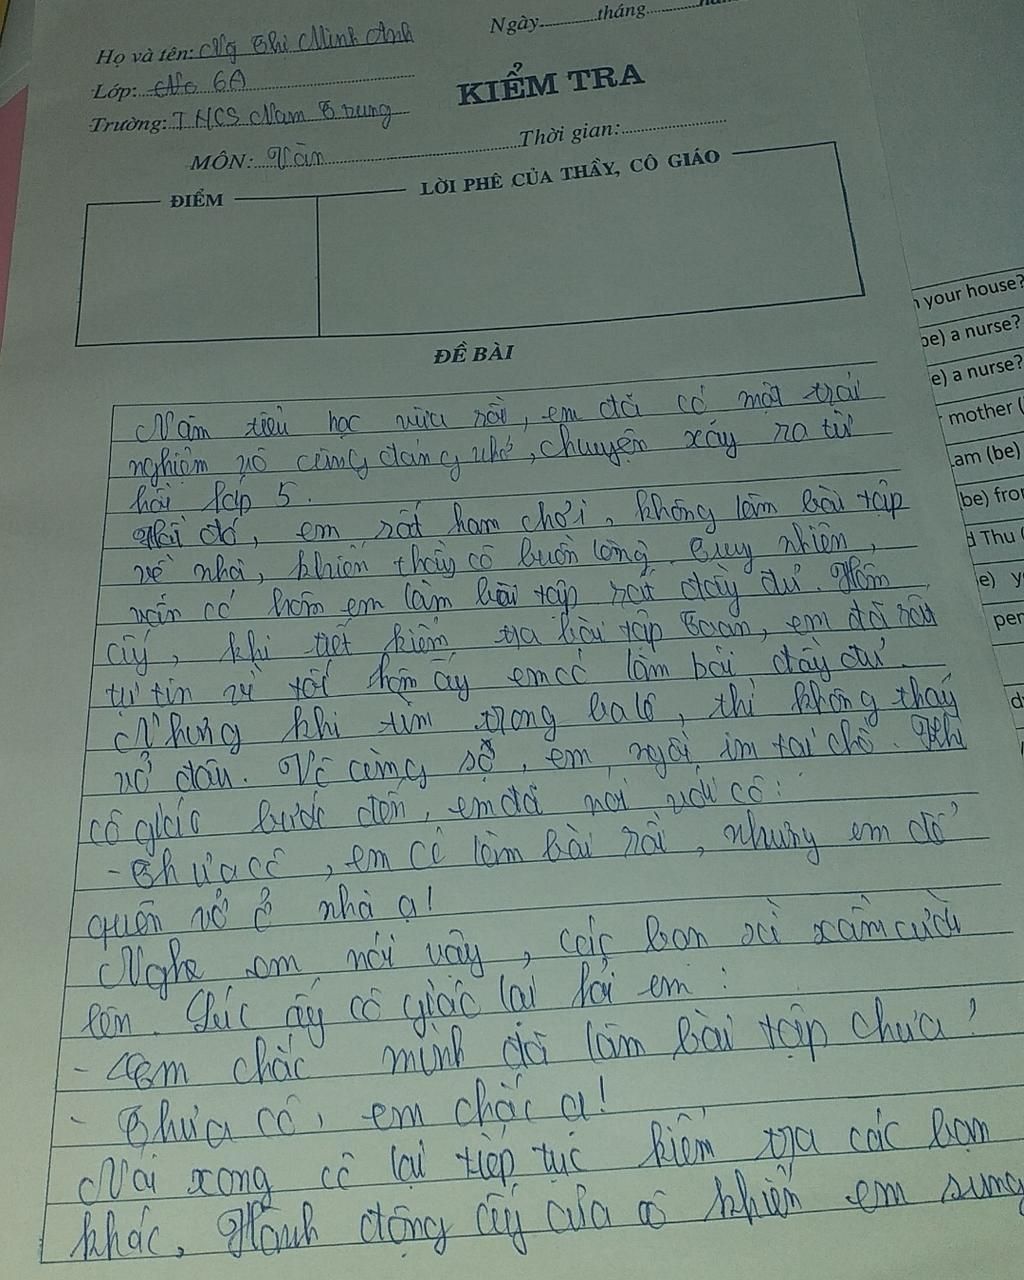 Ngày............tháng............
Họ và tên: Ng Thị Minh Anh
Lớp: 6A
KIỂM TRA
Trường: THCS Nam Trung
Thời gian:
MÔN: Văn
ĐIỂM
LỜI PHÊ CỦA THẦY, CÔ GIÁO
ĐỀ BÀI
Năm tiểu học vừa rồi, em đã có một trải
nghiệm vô cùng đáng nhớ, chuyện xảy ra từ
hồi lớp 5.
Hồi đó, em rất ham chơi, không làm bài tập
về nhà, khiến thầy cô buồn lòng. Tuy nhiên,
vẫn có hôm em làm bài tập rất đầy đủ. Hôm
ấy, khi tiết kiểm tra bài tập Toán, em đã rất
tự tin vì tối hôm ấy em có làm bài đầy đủ.
Nhưng khi tìm trong balô, thì không thấy
vở đâu. Vô cùng sợ, em ngồi im tại chỗ. Khi
cô giáo bước đến, em đã nói với cô:
- Thưa cô, em có làm bài rồi, nhưng em để
quên vở ở nhà ạ!
Nghe em nói vậy, các bạn xì xầm cười
lên. Lúc ấy cô giáo lại hỏi em:
- Em chắc mình đã làm bài tập chưa?
- Thưa cô, em chắc ạ!
Nói xong cô lại tiếp tục kiểm tra các bạn
khác, Hành động ấy của cô khiến em sung
your house?
be) a nurse?
e) a nurse?
mother (
am (be)
be) from
d Thu (
e) y
per
d